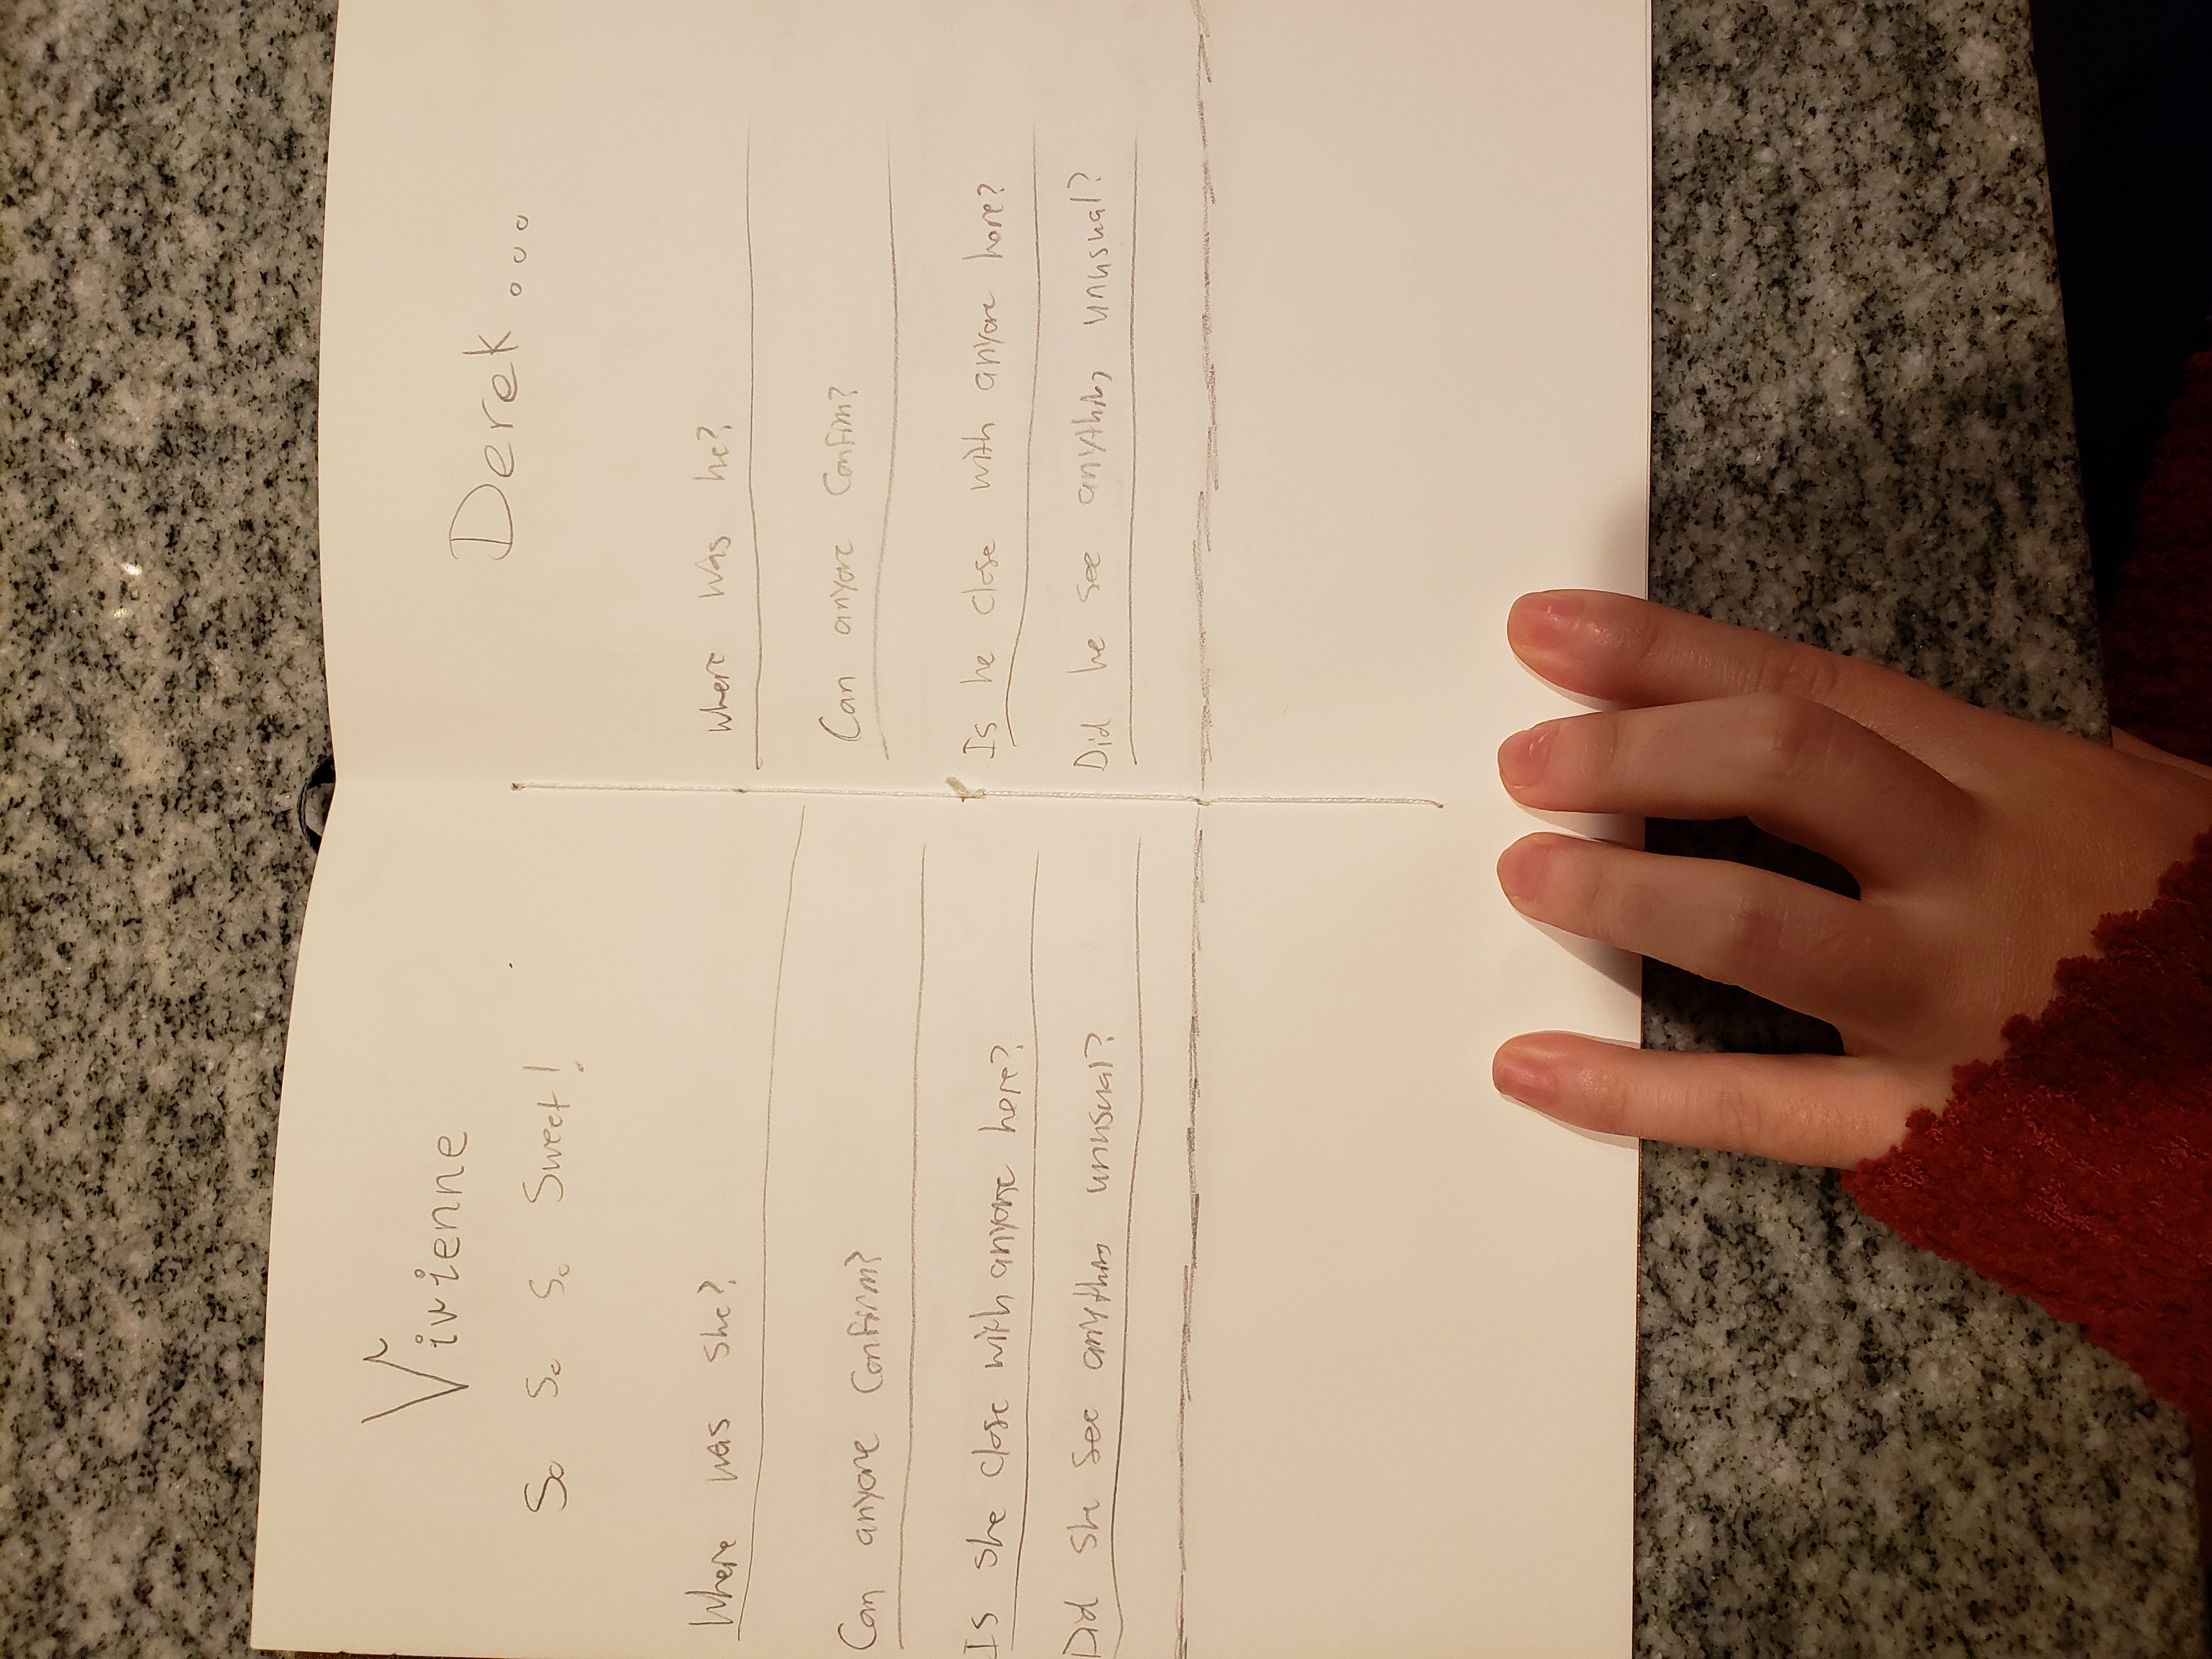 Vivienne
So So So Sweet!
Where was she?
Can anyone Confirm?
Is she close with anyone here?
Did she see anything unusual?
Derek...
where was he?
Can anyone Confirm?
Is he close with anyone here?
Did he see anything unusual?